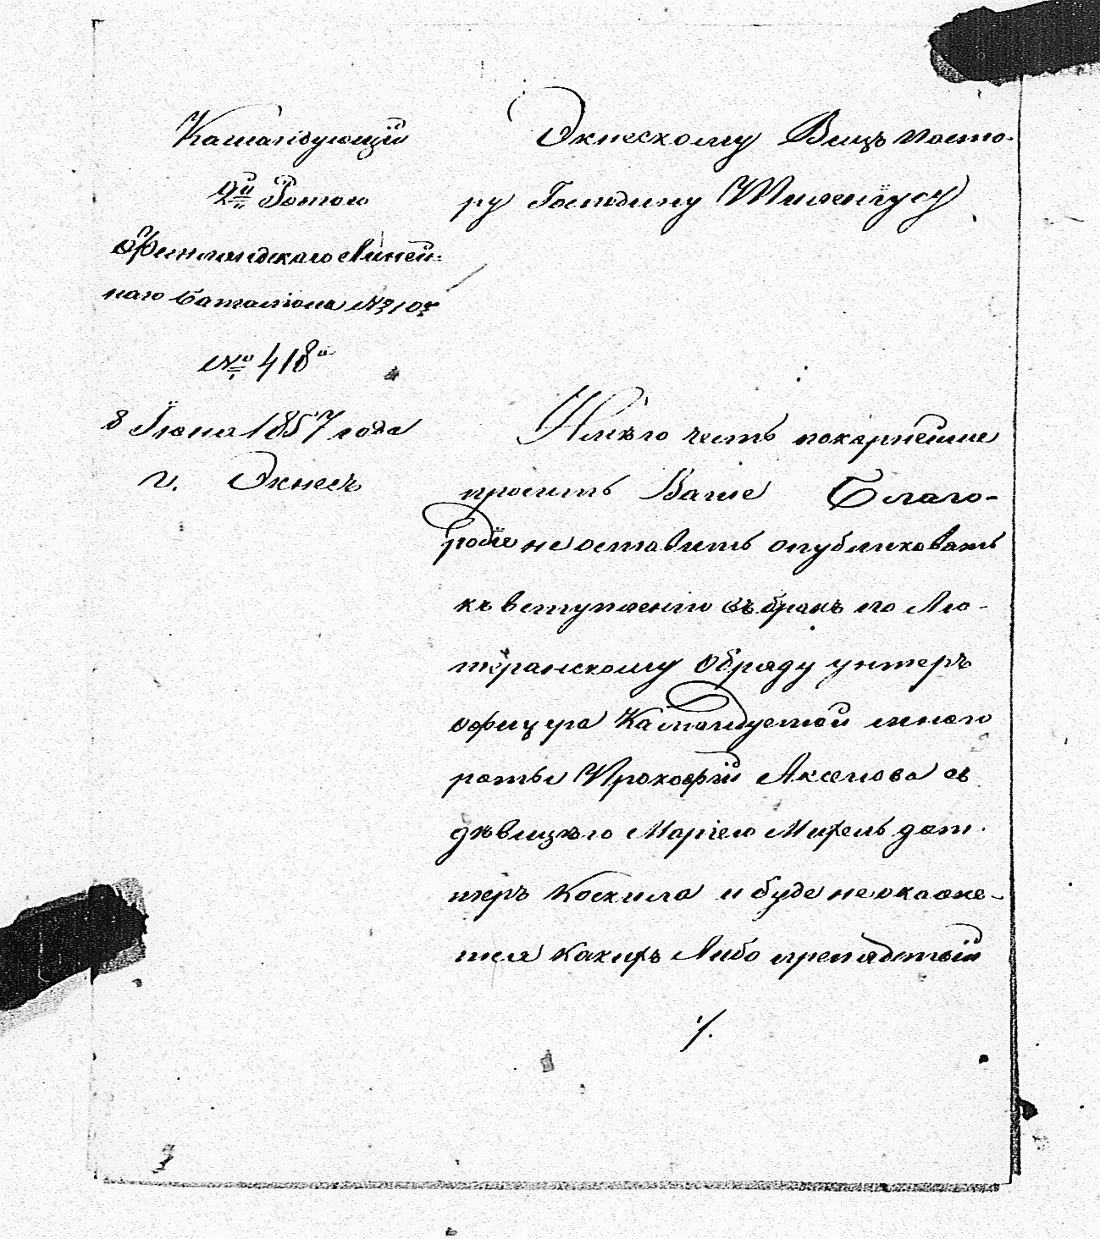 Камандующій
2й Ротою
Финляндскаго Линей-
наго баталіона № 10г
№ 418го
8 Іюня 1857 года
г. Экнесъ
Экнескому Вицъ пасто-
ру Господину
Имѣю честь покарнейше
просить Ваше Благо-
родіе не оставить опубликовать
къ вступленію въ бракъ по Лю-
теранскому обряду унтеръ
офицера Камандуемой мною
роты Прокофій Аксенова съ
дѣвицѣю Маріею Михель дот-
теръ Коскила и буде не окаже-
тся какихъ Либо препядствій
./.